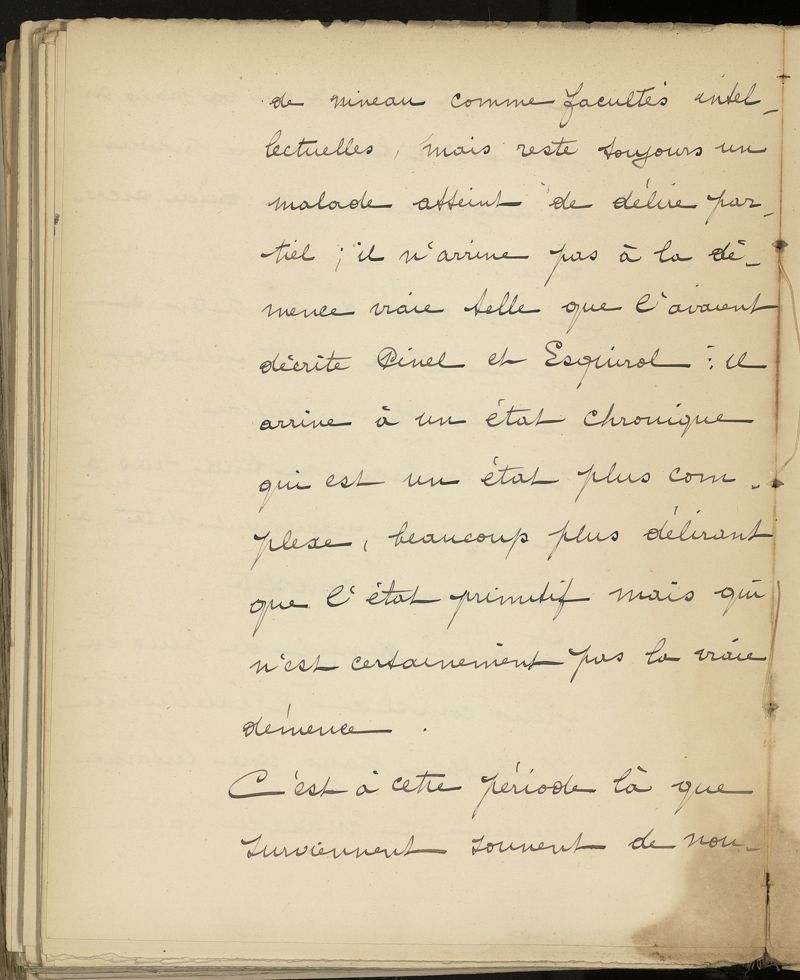 de niveau comme facultés intel-
lectuelles, mais reste toujours un
malade atteint de délire par-
tiel ; il n'arrive pas à la dé-
mence vraie telle que l'avaient
décrite Pinel et Esquirol : il
arrive à un état chronique
qui est un état plus com-
plexe, beaucoup plus délirant
que l'état primitif mais qui
n'est certainement pas la vraie
démence .
C'est à cette période là que
surviennent souvent de nou-